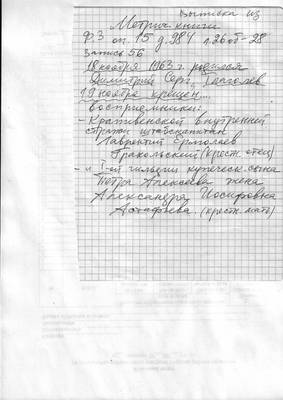 Выписка из
Метрич. книги
Ф 3 оп. 15 д. 984 л. 26 об - 28
Запись 56
18 ноября 1863 г. родился
Димитрий Серг. Глаголев
19 ноября крещен...
Восприемники:
- Крапивенской внутренней
стражи штабскапитан
Лаврентий Ермолаев
(крест. отец)
- и I-ой гильдии купеческ. сына
Петра Алексеева жена
Александра Иосифовна
Астафьева (крест. мать)